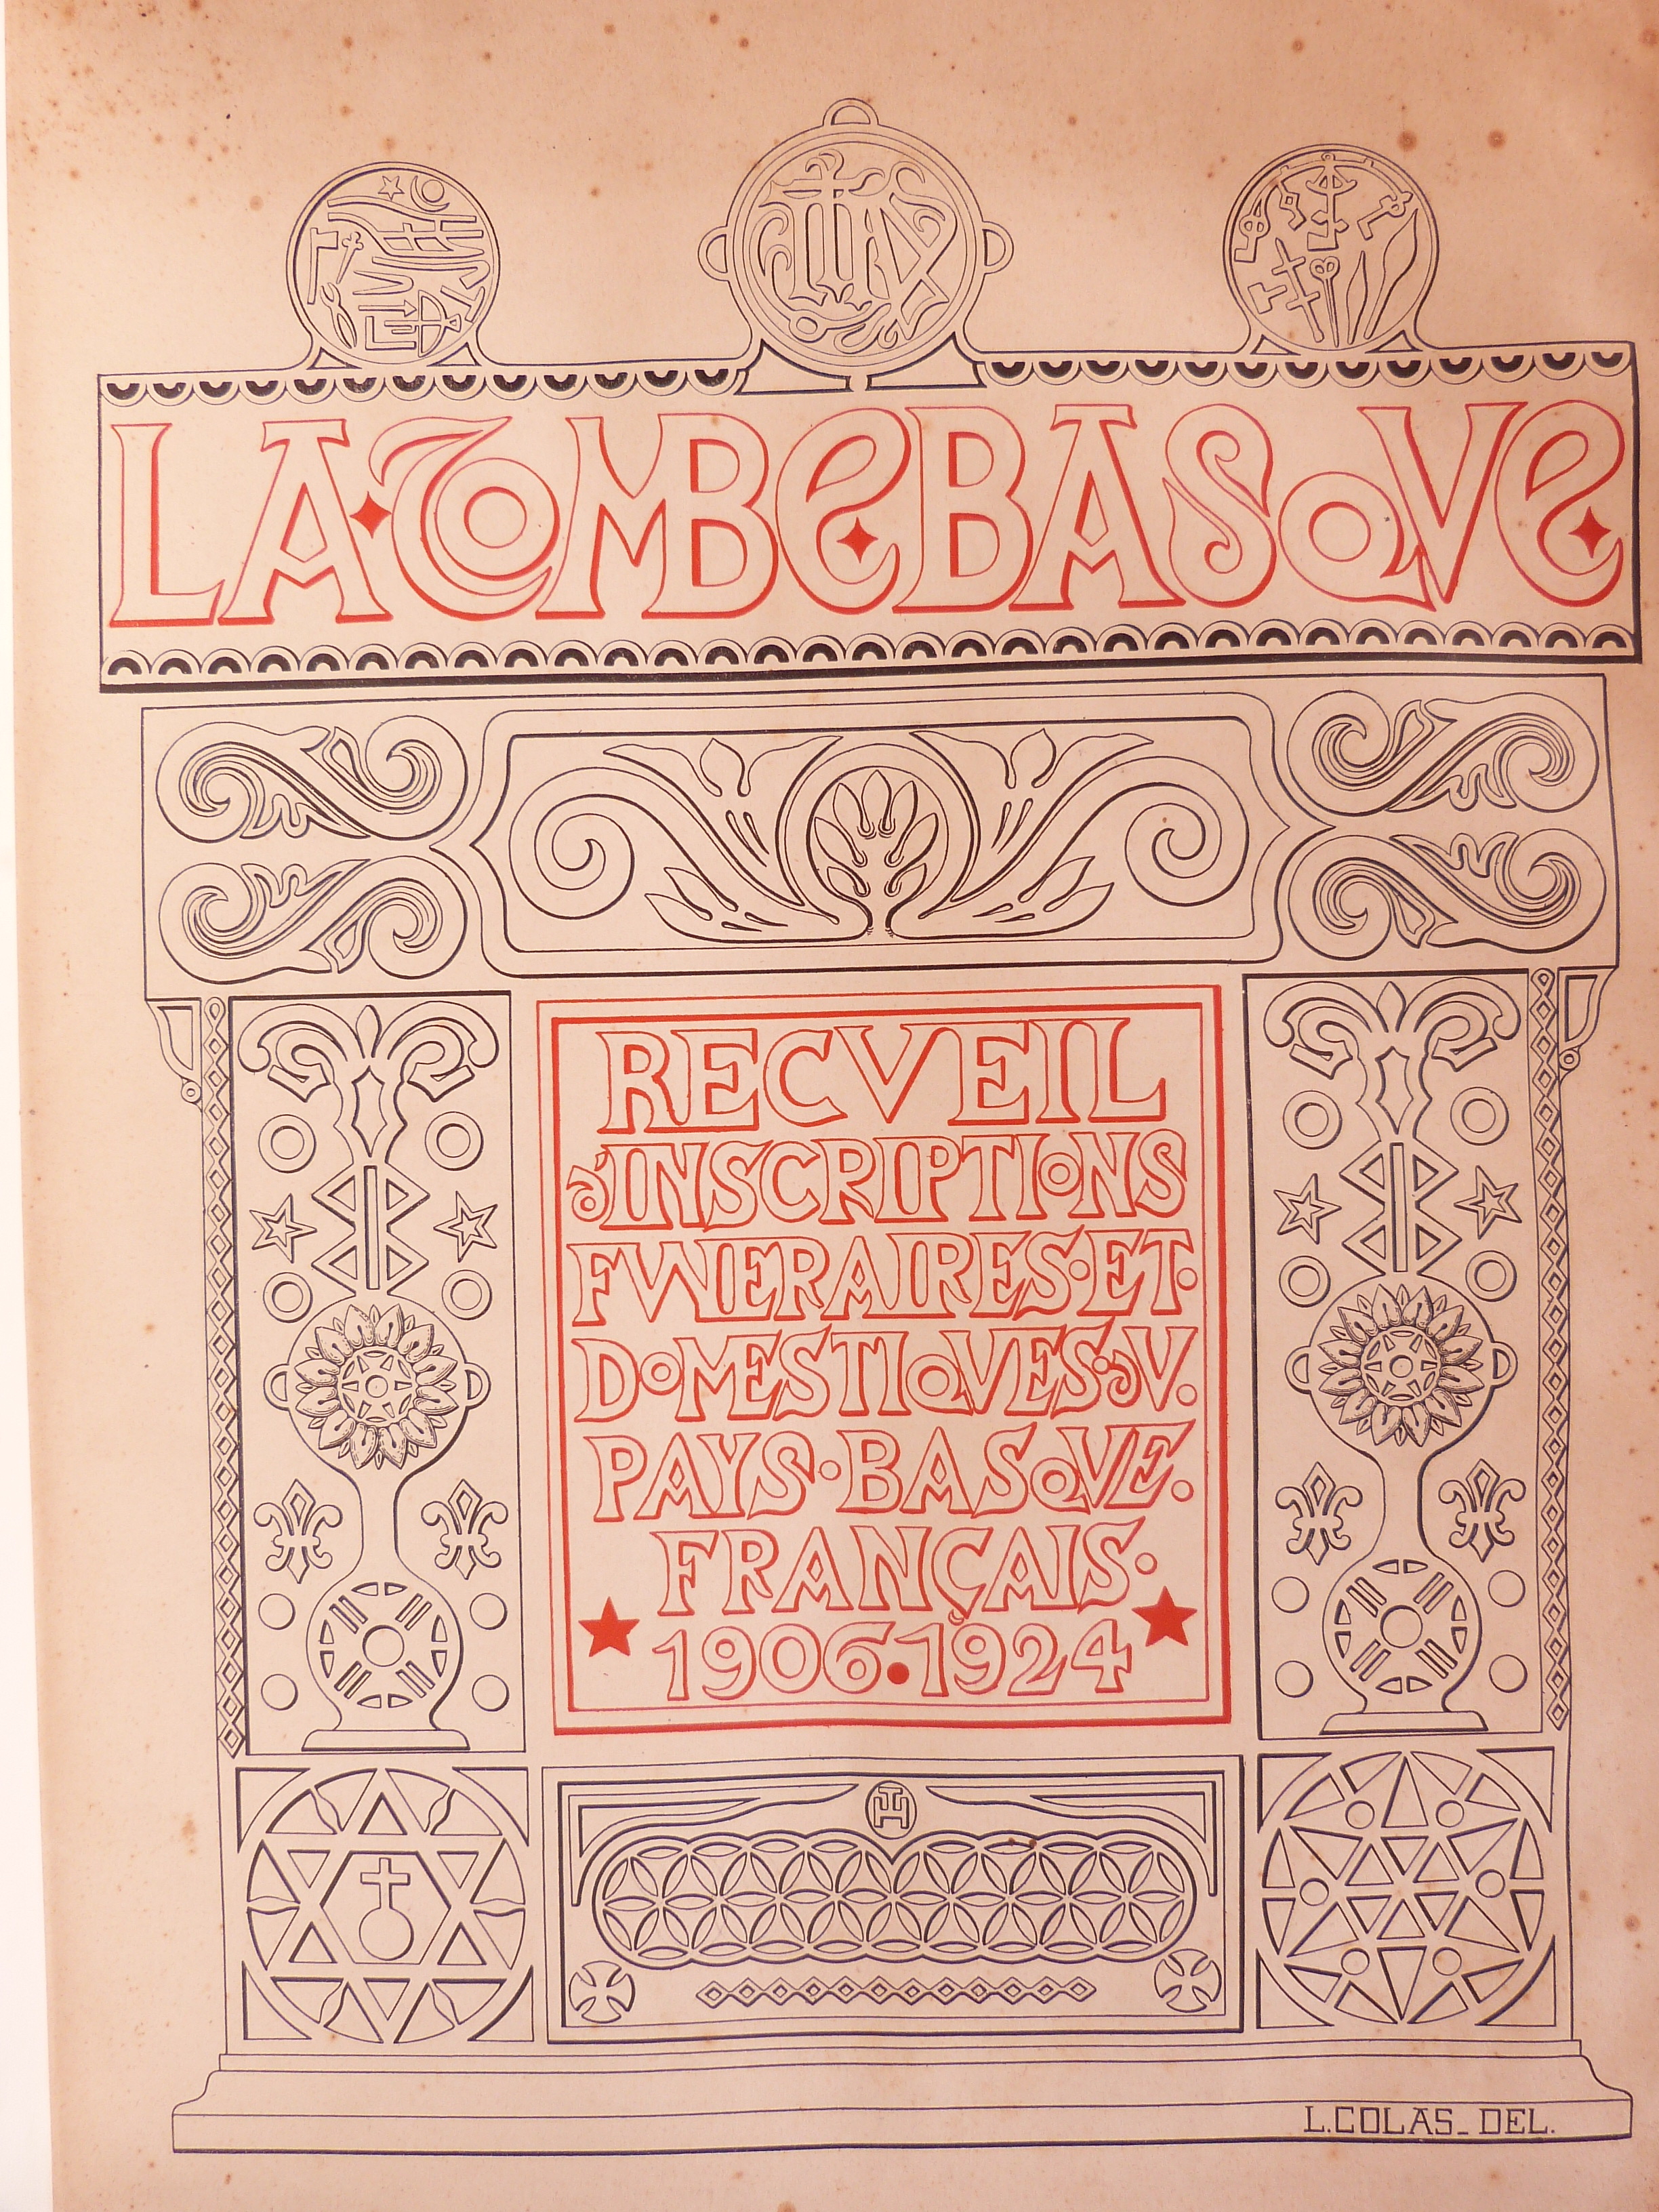 IHS
LA TOMBE BASQVE
RECVEIL
d'INSCRIPTIONS
FVNERAIRES·ET·
DOMESTIQVES·dV.
PAYS·BASQVE.
FRANÇAIS·
1906·1924
IH
L.COLAS_DEL.